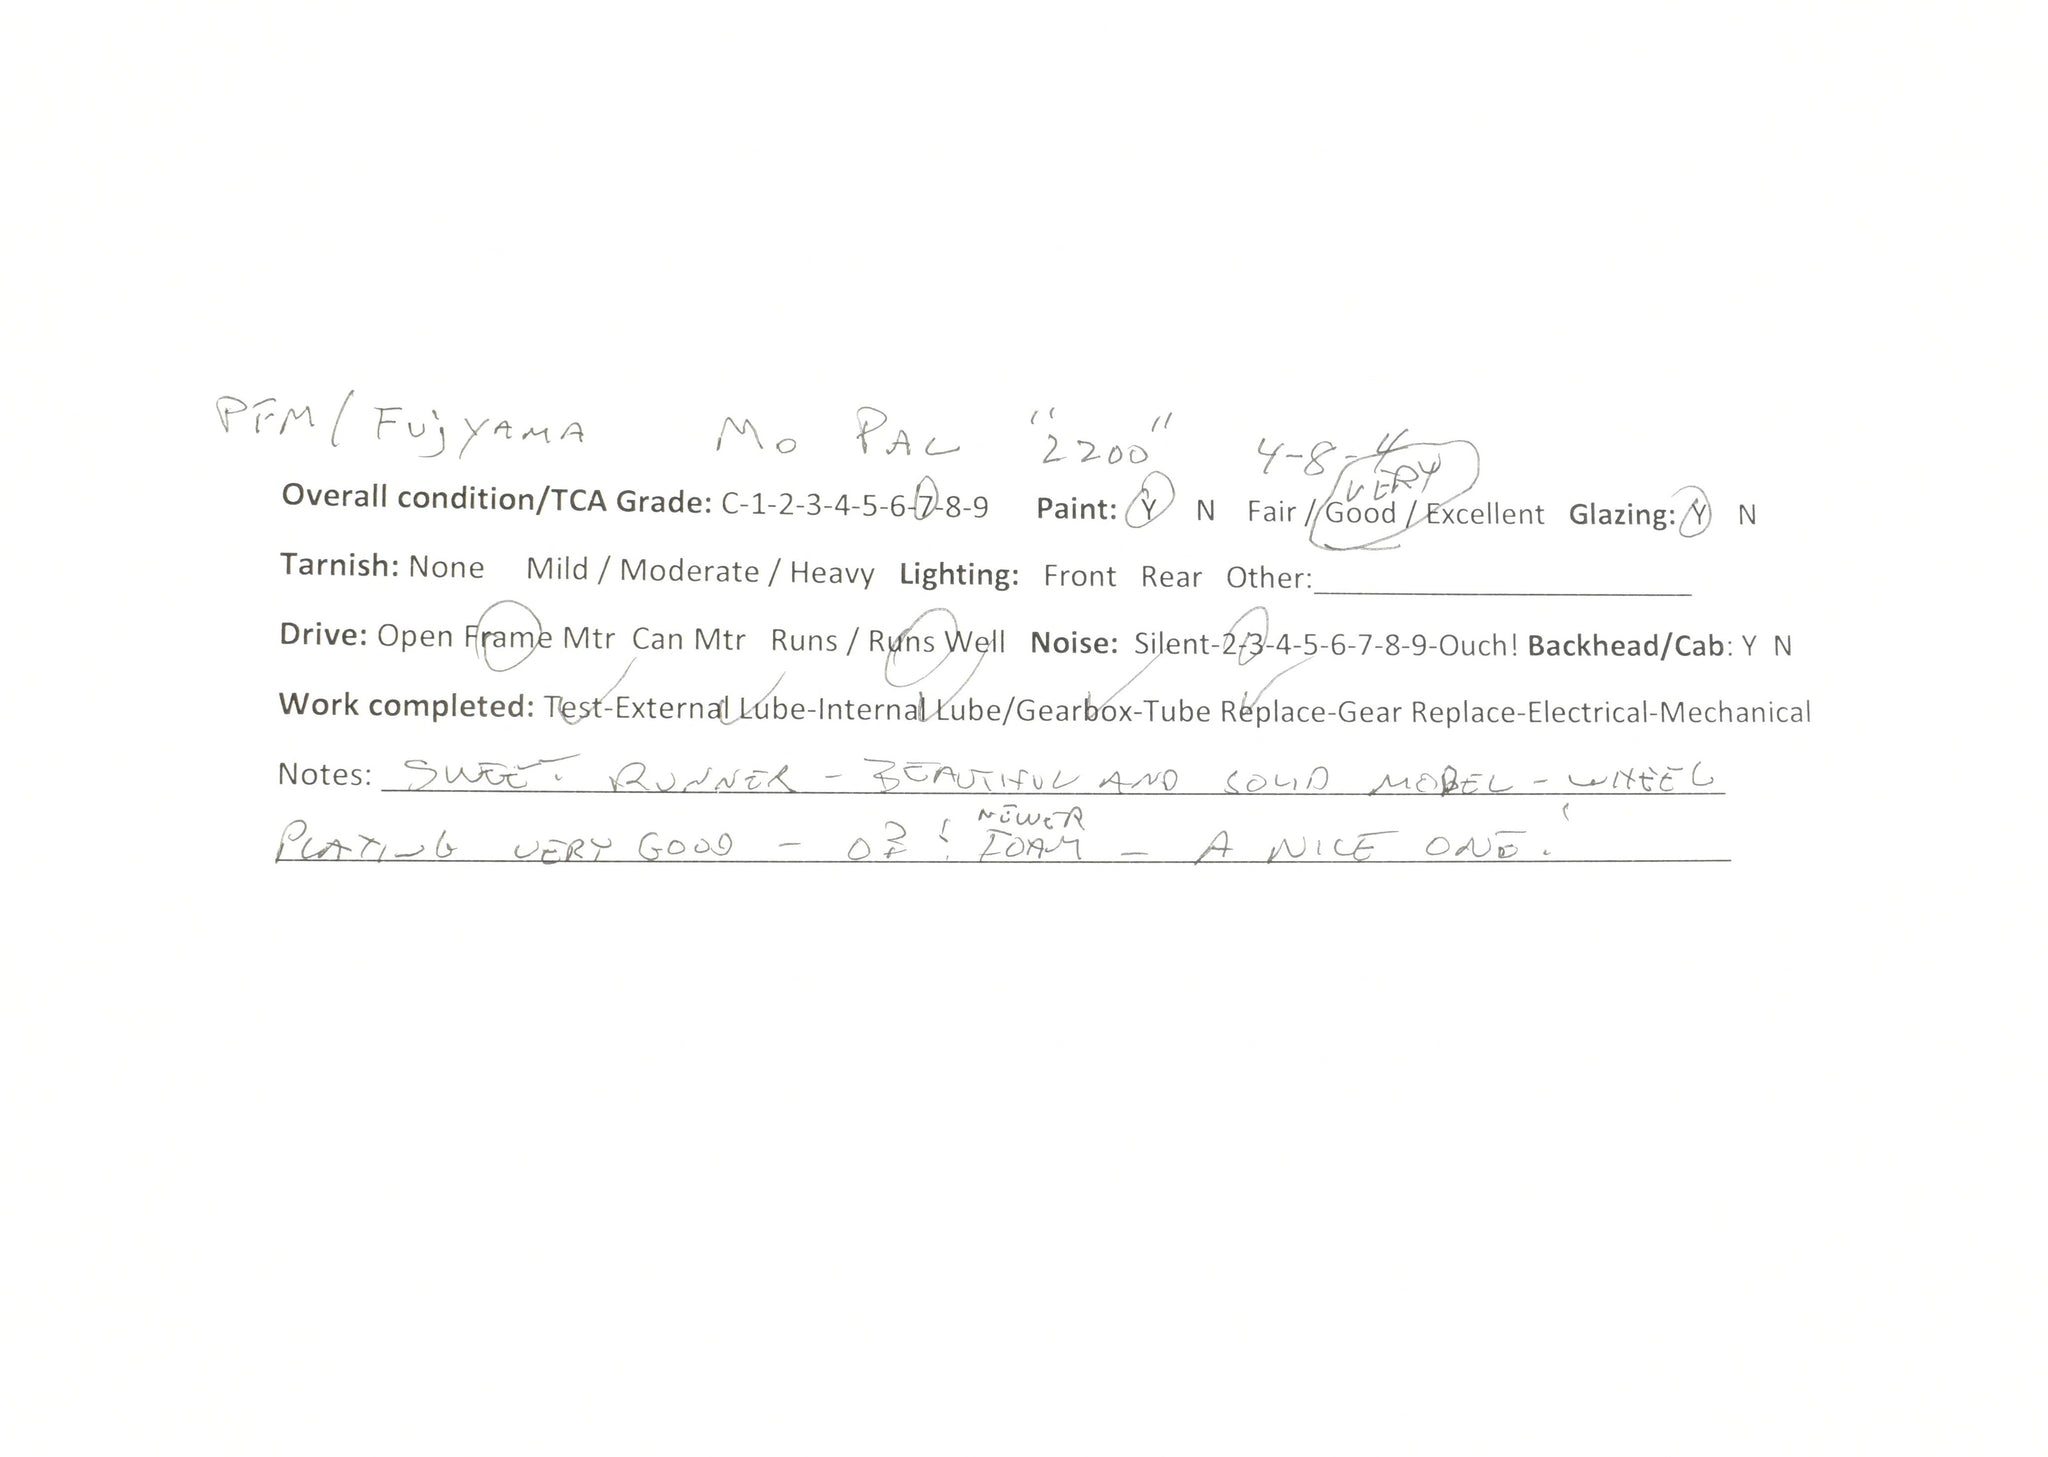 PFM/FUjYAMA MO PAC "2200" 4-8-4
VERY
Overall condition/TCA Grade: C-1-2-3-4-5-6-7-8-9 Paint: Y N Fair / Good / Excellent Glazing: Y N
Tarnish: None Mild / Moderate / Heavy Lighting: Front Rear Other:
Drive: Open Frame Mtr Can Mtr Runs / Runs Well Noise: Silent-2-3-4-5-6-7-8-9-Ouch! Backhead/Cab: Y N
Work completed: Test-External Lube-Internal Lube/Gearbox-Tube Replace-Gear Replace-Electrical-Mechanical
Notes: SWEET RUNNER - BEAUTIFUL AND SOLID MODEL - WHEEL
NEWER
PLATING VERY GOOD - OB! FOAM - A NICE ONE!